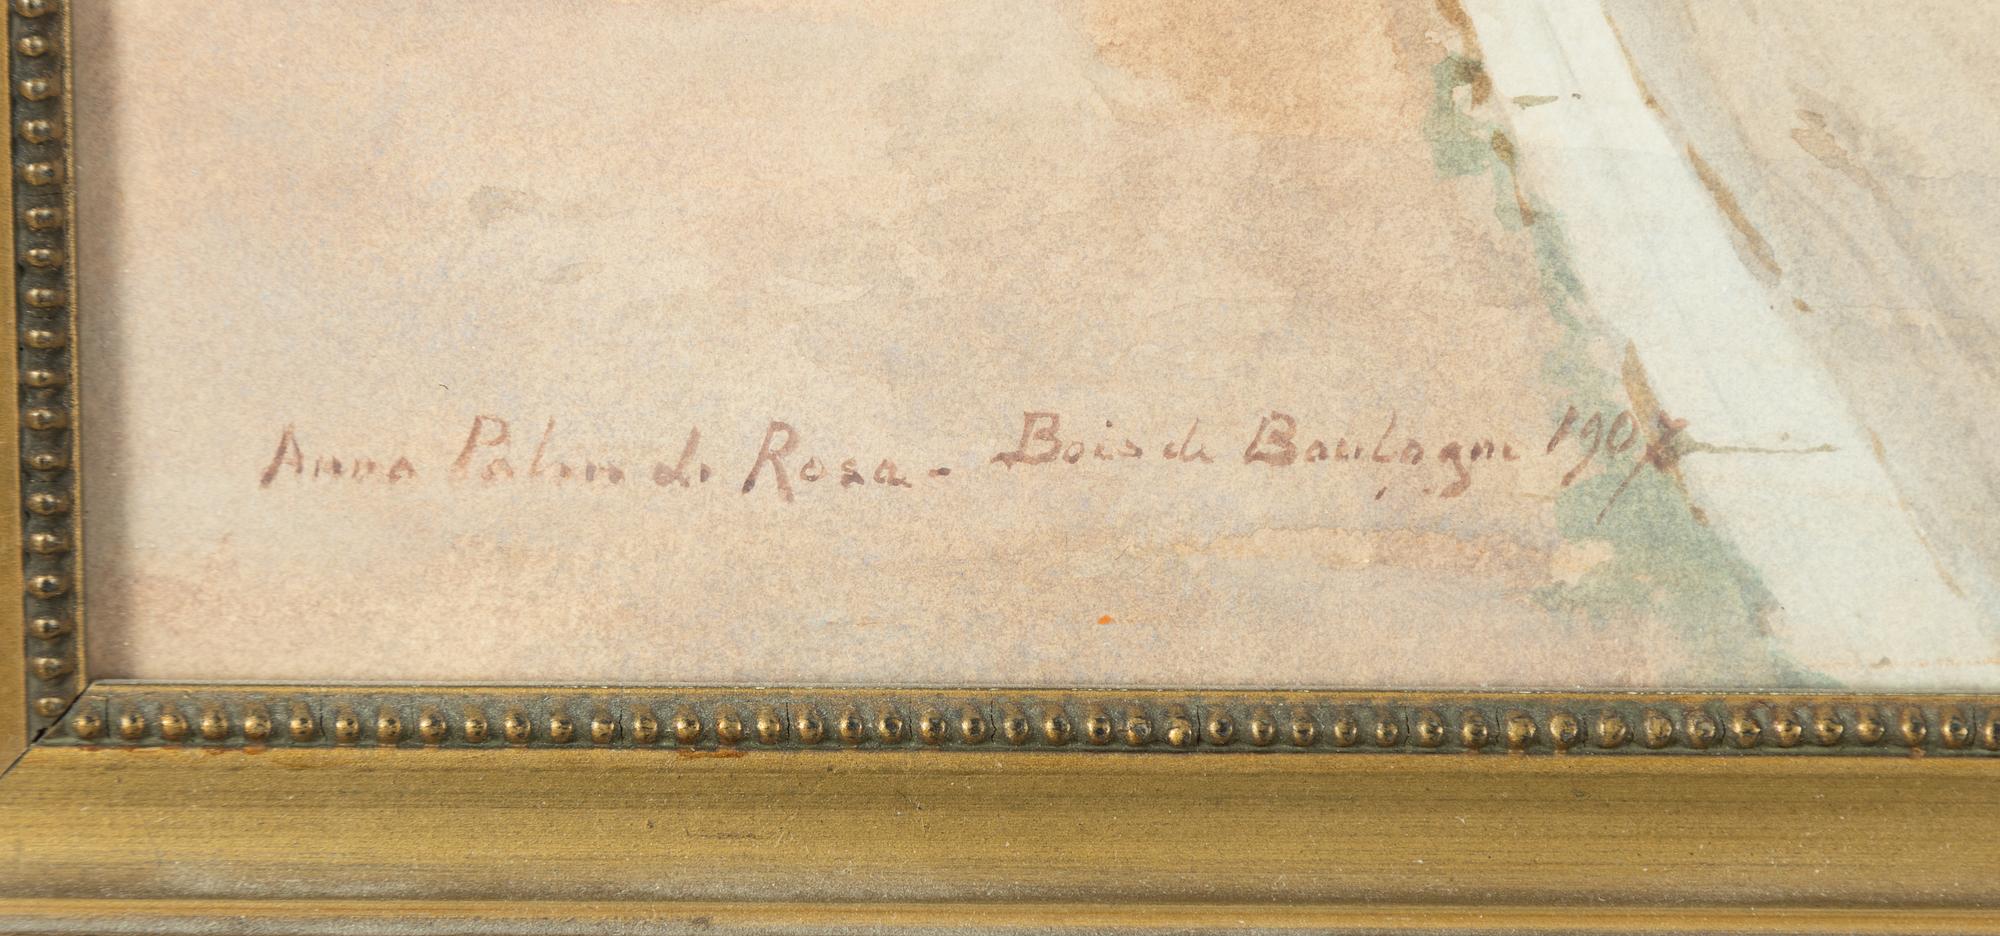 Anna Palm de Rosa - Bois de Boulogne 1907